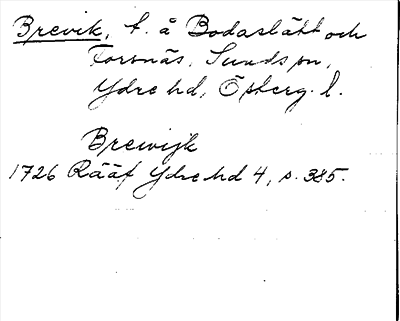 Brevik, t. å Bodaslätt och
Forsnäs, Sunds sn,
Ydre hd, Österg. l.
Brewijk
1726 Rääf Ydre hd 4, s. 385.